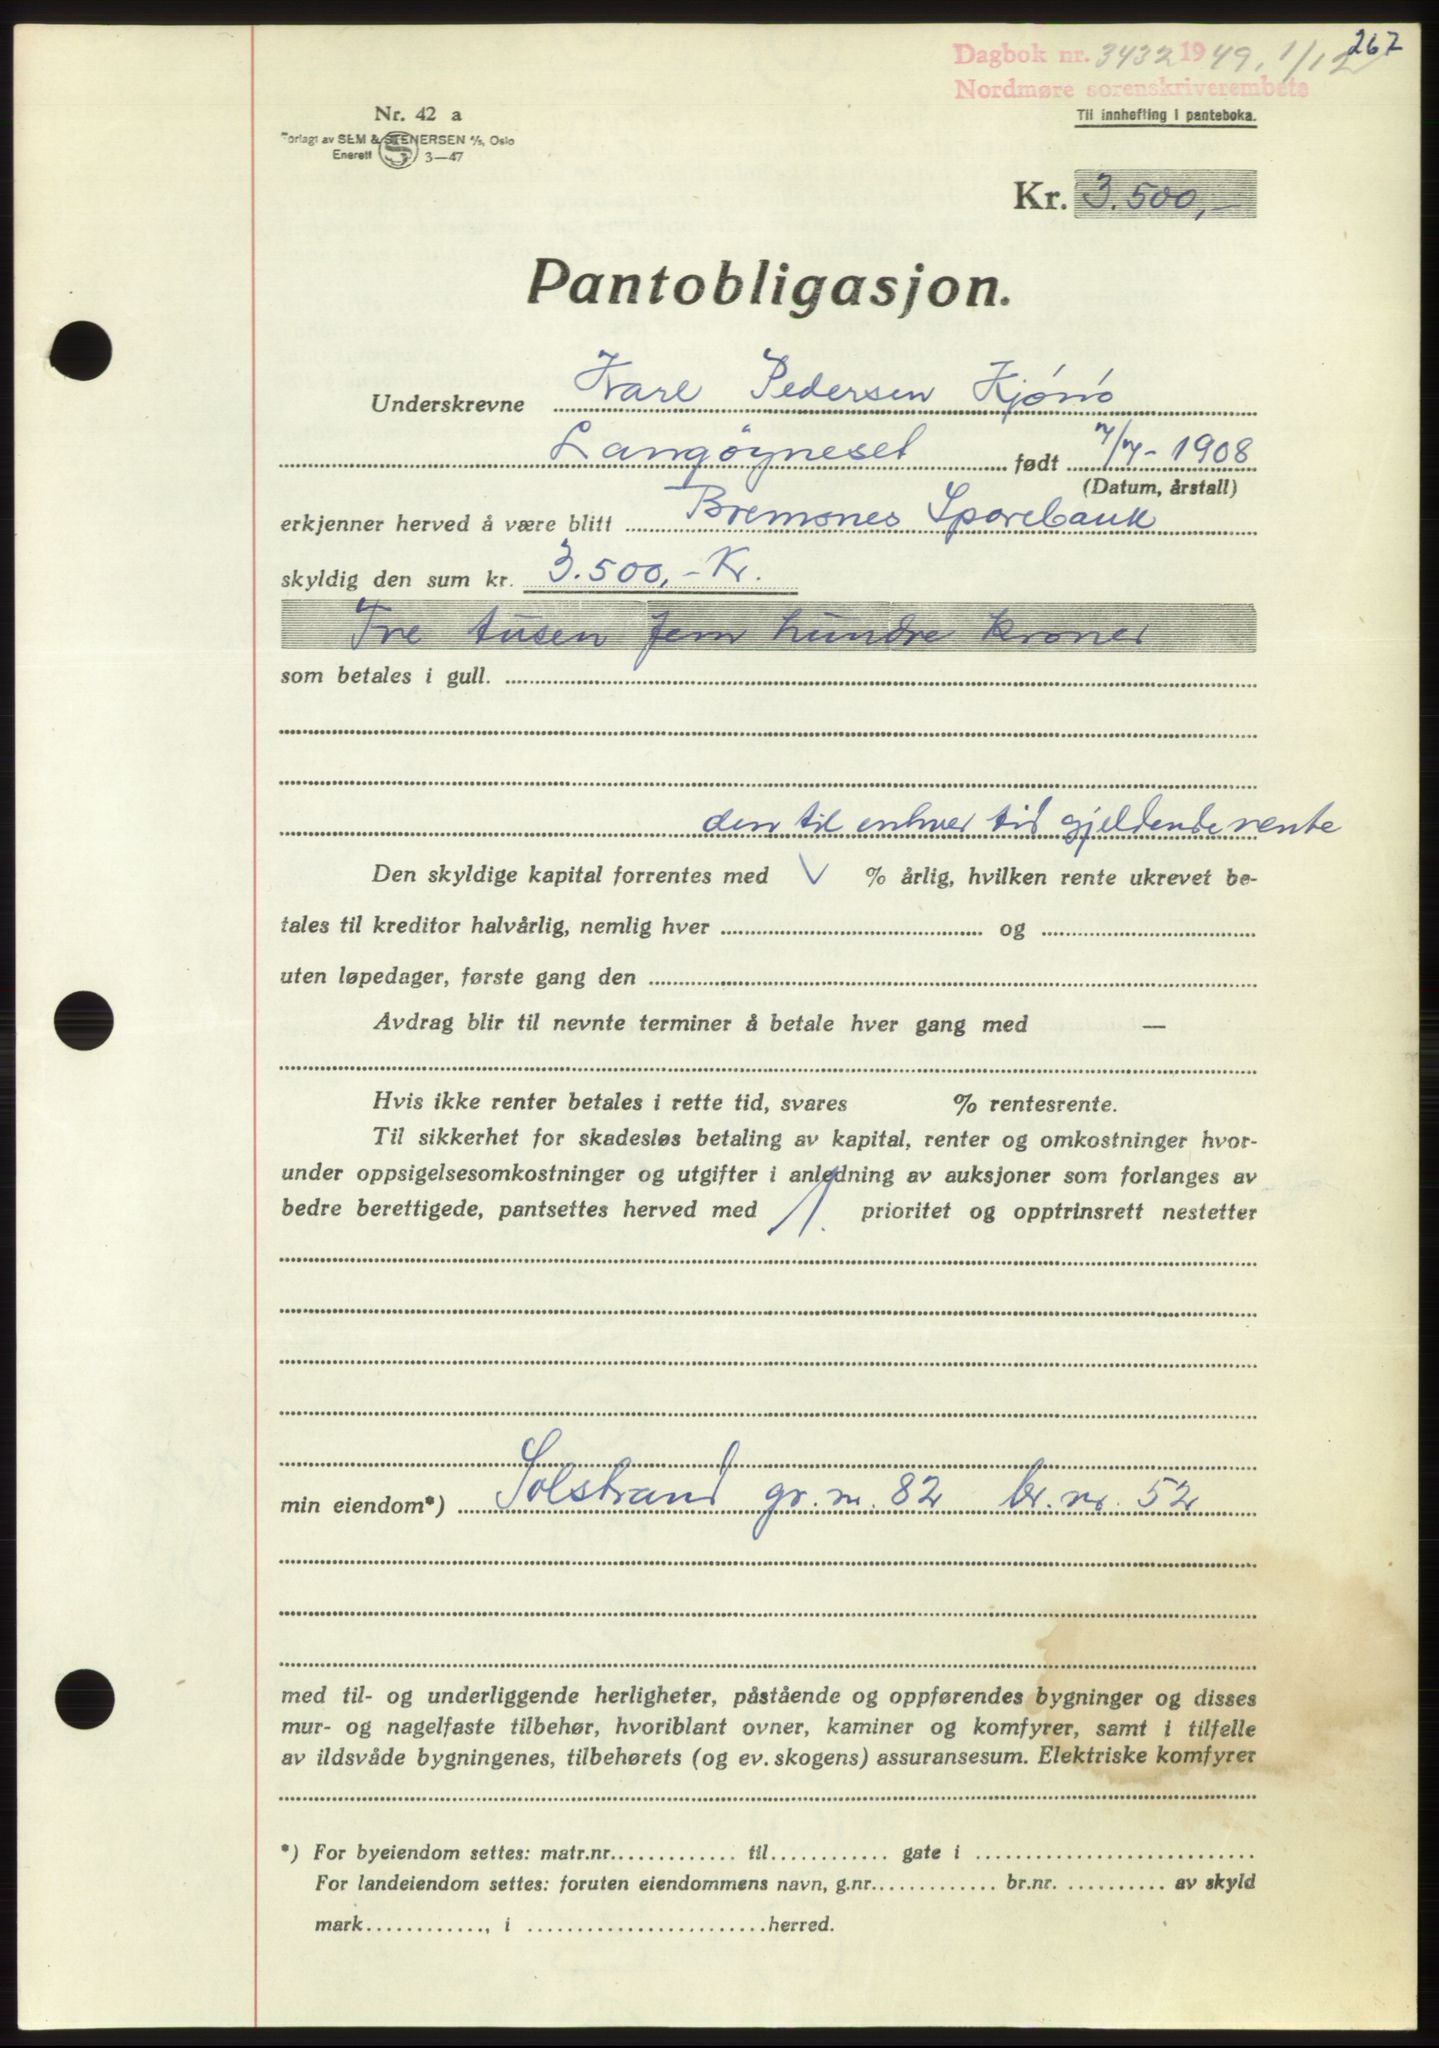 267
Dagbok nr. 3432 1949, 1/12
Nordmøre sorenskriverembete
Nr. 42 a
Til innhefting i panteboka.
Forlagt av SEM & STENERSEN A/S, Oslo
Enerett S 3—47
Kr. 3.500,-
Pantobligasjon.
Underskrevne Kare Pedersen Kjønø
Langøyneset født 7/7-1908
(Datum, årstall)
erkjenner herved å være blitt Bremsnes Sparebank
skyldig den sum kr. 3.500,- Kr.
Tre tusen fem hundre kroner
som betales i gull.
den til enhver tid gjeldende rente
Den skyldige kapital forrentes med % årlig, hvilken rente ukrevet be-
tales til kreditor halvårlig, nemlig hver og
uten løpedager, første gang den
Avdrag blir til nevnte terminer å betale hver gang med —
Hvis ikke renter betales i rette tid, svares % rentesrente.
Til sikkerhet for skadesløs betaling av kapital, renter og omkostninger hvor-
under oppsigelsesomkostninger og utgifter i anledning av auksjoner som forlanges av
bedre berettigede, pantsettes herved med 1. prioritet og opptrinsrett nestetter
min eiendom*) Solstrand gr. nr. 82 br. nr. 52
med til- og underliggende herligheter, påstående og oppførendes bygninger og disses
mur- og nagelfaste tilbehør, hvoriblant ovner, kaminer og komfyrer, samt i tilfelle
av ildsvåde bygningenes, tilbehørets (og ev. skogens) assuransesum. Elektriske komfyrer
*) For byeiendom settes: matr.nr............. til............ gate i ............................
For landeiendom settes: foruten eiendommens navn, g.nr............. br.nr. .......... av skyld
mark............, i ........................herred.